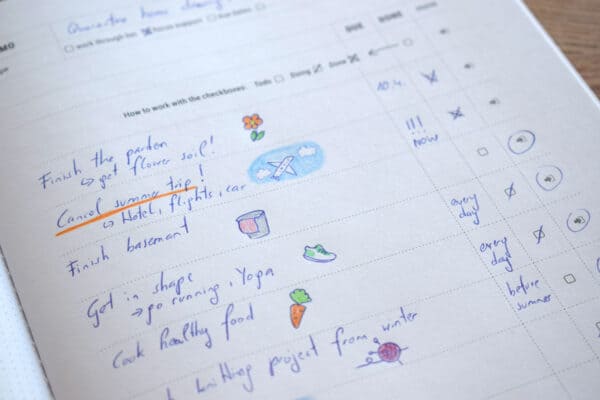 Quarantine home
work through list Focus support
DUE DONE
How to work with the checkboxes: Todo Doing Done
Finish the garden 10.4.
↳ get flower soil!
Cancel summer trip! !!! now
↳ Hotel, flights, car
Finish basemant
Get in shape every day
↳ go running, Yoga
Cook healthy food every day
knitting project from winter before summer